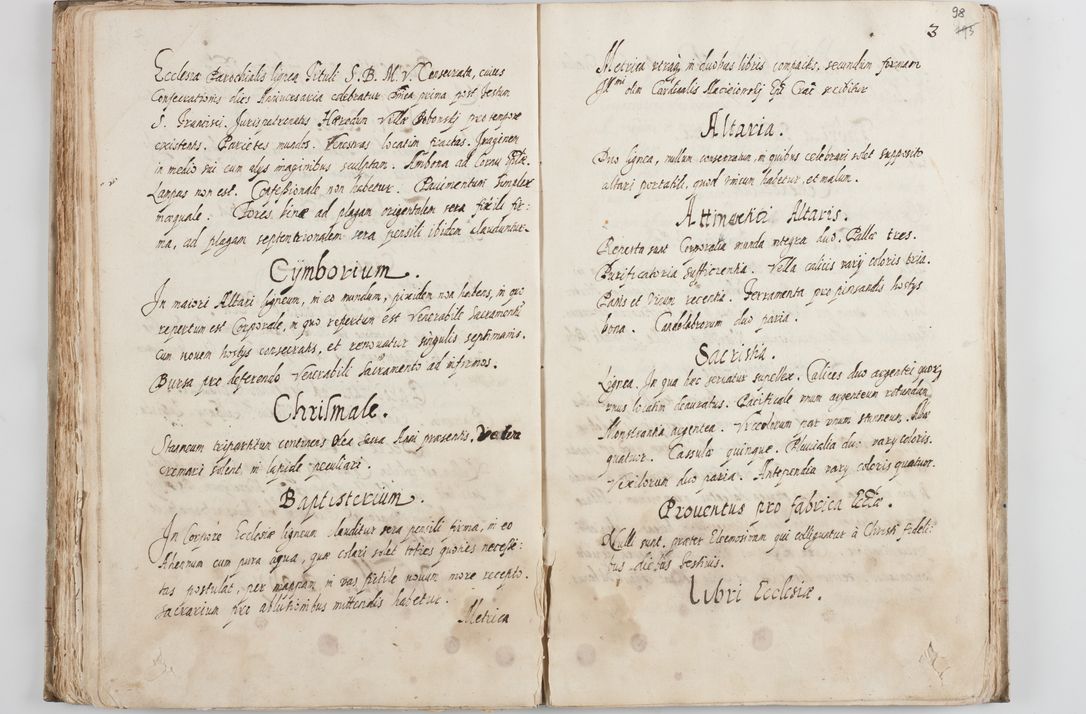 Ecclesia Parochialis lignea Tituli S. B. M. V. Consecrata, cuius
Consecrationis dies Anniversaria celebratur Dnica prima post festum
S. Francisci. Jurispatronatus Hæredum Villæ pro tempore
existentis. Parietes mundos. locatim tractas. Imaginem
in medio sui cum alys imaginibus sculptam. Ambona ad Cornu
Lampas non est. Confessionale non habetur. Pauimentum simplex
inæquale. Fores binæ ad plagam orientalem sera fixili fir:
ma, ad plagam septentrionalem sera pensili ibidem clauduntur.
Cÿmborium.
In maiori Altari ligneum, in eo mundum, pixidem non habens, in quo
repertum est Corporale, in quo refertum est Venerabili Sacramento
cum nouem hostys consecratis, et renouatur singulis septimanis.
Bursa pro deferendo Venerabili Sacramento ad infirmos.
Chrismale.
Stanneum tripartitum continens Olea Sacra Anni præsentis.
cremari solent, in lapide peculiari.
Baptisterium.
In Corpore Ecclesiæ ligneum clauditur sera pensili firma, in eo
Ahennum cum pura aqua, quæ colari solet toties quoties necessi:
tas postulat, per in vas fictile nouum more recepto.
Sacrarium pro ablutionibus mittendis habetur.
Metrica
98
3
Metrica utraq in duobus libris compactis, secundum formam
Illmi olim Cardinalis Macieiowsky Epi Crac
Altaria.
Duo lignea, nullum consecratum, in quibus celebrari solet supposito
altari portatili, quod unicum habetur, et malum.
Attinentia Altaris.
Reperta sunt Corporalia munda integra duo. Pallæ tres.
Purificatoria sufficientia. Vella calicis vary coloris tria.
Panis et Vinum recentia. Ferramenta pro pinsandis hostys
bona. Candelabrorum duo paria.
Sacristia.
Lignea. In qua hæc seruatur supellex. Calices duo argentei quorum
unus locatim deauratus. Pacificale unum argenteum rotundum.
Monstrantia argentea. Urceolorum par unum stanneum. Albæ
quatuor. Casulæ quinque. Pluuialia duo vary coloris.
Vexilorum duo paria. Antependia vary coloris quatuor.
Prouentus pro fabrica Eccliæ.
Nulli sunt, præter Eleemosinam qui colliguntur à Christi fideli:
bus diebus festiuis.
Libri Ecclesiæ.